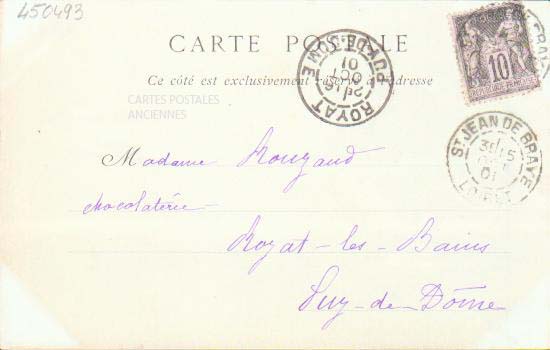 450493
CARTE POSTALE
Ce côté est exclusivement réservé à l'adresse
CARTES POSTALES
ANCIENNES
ROYAT PUY-DE-DÔME
2E
OCT
01
10
ST JEAN DE BRAYE
01
LOIRET
Madame Rouzaud
chocolaterie
Royat-les-Bains
Puy-de-Dôme